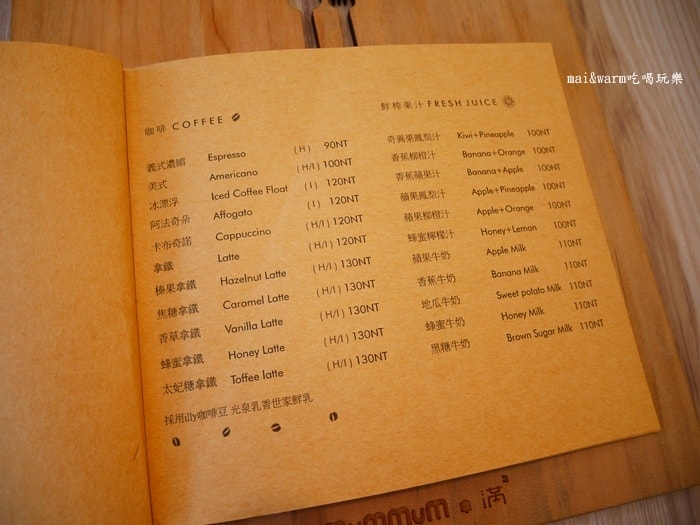 mai&warm吃喝玩樂
咖啡 COFFEE
義式濃縮 Espresso (H) 90NT
美式 Americano (H/I) 100NT
冰漂浮 Iced Coffee Float (I) 120NT
阿法奇朵 Affogato (I) 120NT
卡布奇諾 Cappuccino (H/I) 120NT
拿鐵 Latte (H/I) 120NT
榛果拿鐵 Hazelnut Latte (H/I) 130NT
焦糖拿鐵 Caramel Latte (H/I) 130NT
香草拿鐵 Vanilla Latte (H/I) 130NT
蜂蜜拿鐵 Honey Latte (H/I) 130NT
太妃糖拿鐵 Toffee latte (H/I) 130NT
採用illy咖啡豆 光泉乳香世家鮮乳
鮮榨果汁 FRESH JUICE
奇異果鳳梨汁 Kiwi+Pineapple 100NT
香蕉柳橙汁 Banana+Orange 100NT
香蕉蘋果汁 Banana+Apple 100NT
蘋果鳳梨汁 Apple+Pineapple 100NT
蘋果柳橙汁 Apple+Orange 100NT
蜂蜜檸檬汁 Honey+Lemon 100NT
蘋果牛奶 Apple Milk 110NT
香蕉牛奶 Banana Milk 110NT
地瓜牛奶 Sweet potato Milk 110NT
蜂蜜牛奶 Honey Milk 110NT
黑糖牛奶 Brown Sugar Milk 110NT
mummum 滿